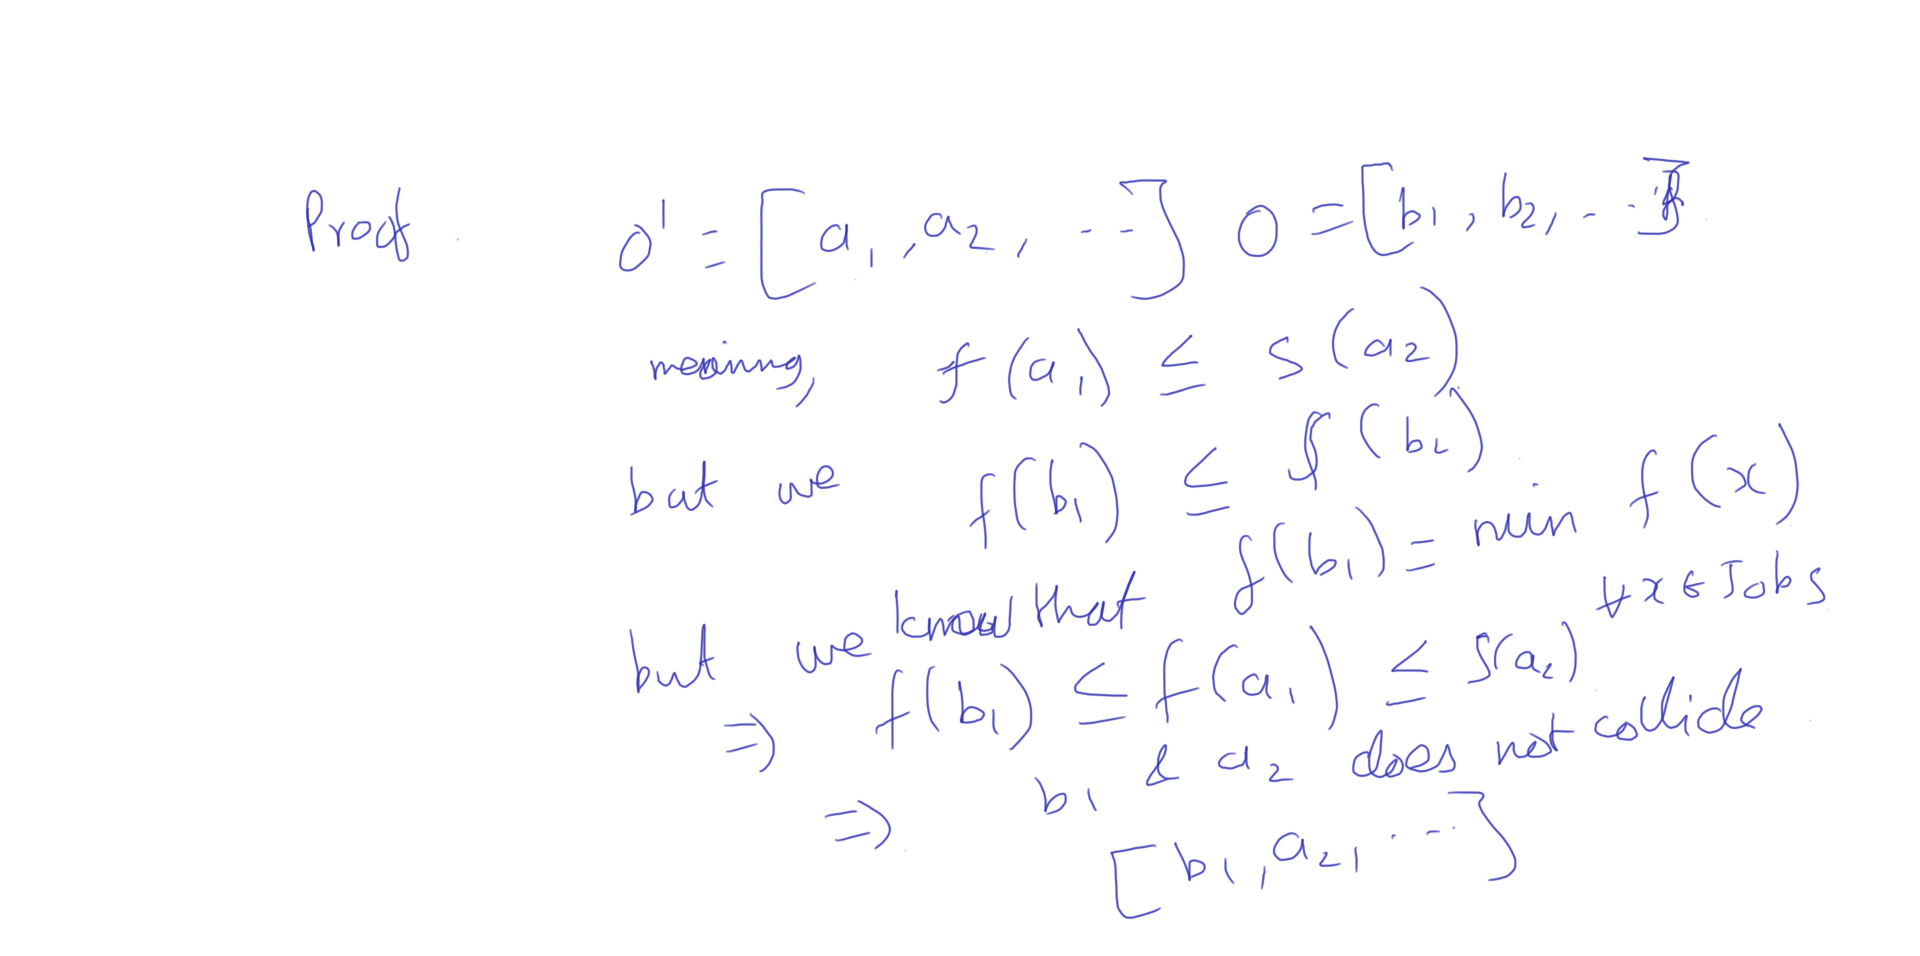 Proof O' = [a₁, a₂, ...] O = [b₁, b₂, ...]
meaning, f(a₁) ≤ s(a₂)
but we f(b₁) ≤ f(b₂)
but we know that f(b₁) = min f(x)
∀x ∈ Jobs
⇒ f(b₁) ≤ f(a₁) ≤ s(a₂)
⇒ b₁ & a₂ does not collide
[b₁, a₂, ...]